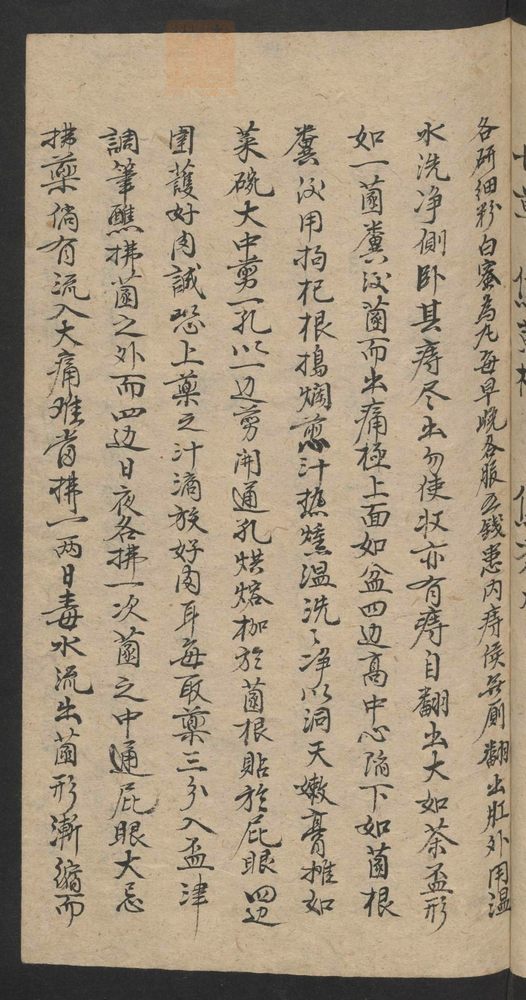 各研细粉白蜜為丸每早晚各服五錢患内痔侯登厠翻出肛外用温
水洗净側卧其痔尽出勿使收亦有痔自翻出大如茶盃形
如一菌糞後菌而出痛極上面如盆四边高中心陷下如菌根
糞後用枸杞根搗爛煎汁熱燻温洗〻净以洞天嫩膏攤如
菜碗大中剪一孔以一边剪開通孔烘熔枷於菌根貼於屁眼四边
圍護好肉誠恐上藥之汁滴於好肉耳每取藥三分入盃津
調筆蘸拂菌之外而四边日夜各拂一次菌之中通屁眼大忌
拂藥倘有流入大痛难當拂一两日毒水流出菌形漸縮而